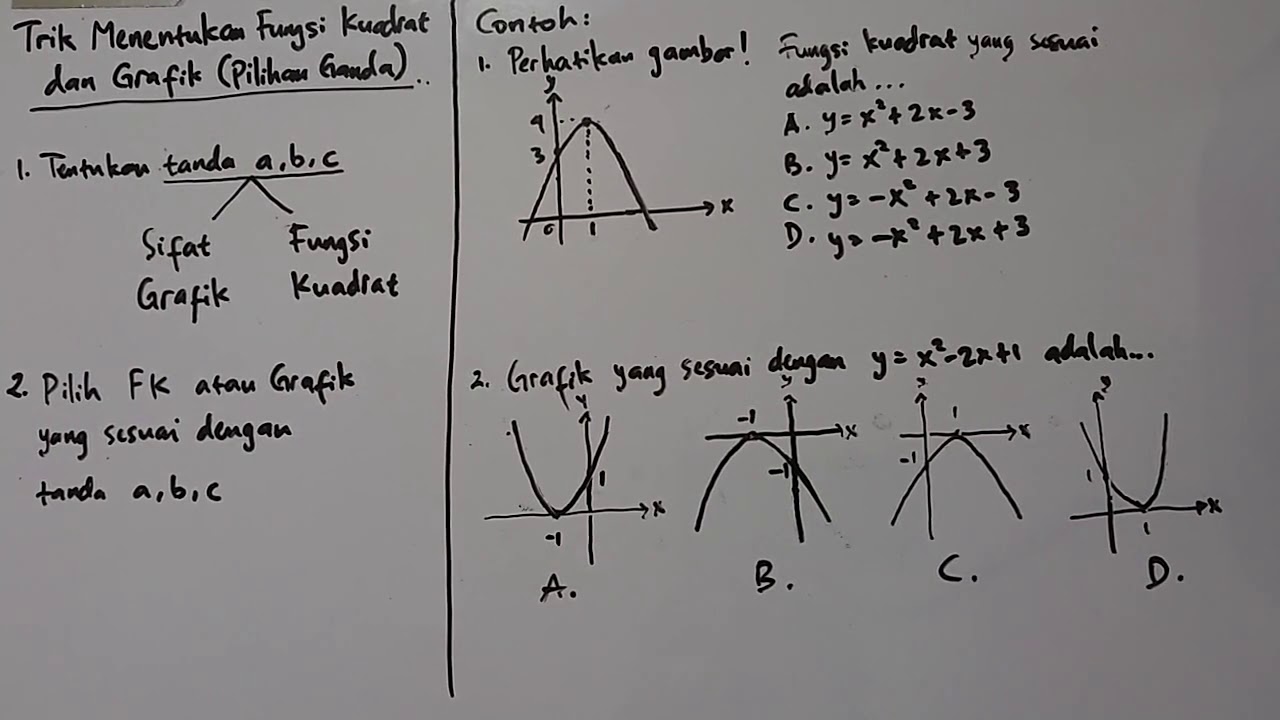 Trik Menentukan Fungsi Kuadrat
dan Grafik (Pilihan Ganda)..
1. Tentukan tanda a, b, c
Sifat
Grafik
Fungsi
Kuadrat
2. Pilih FK atau Grafik
yang sesuai dengan
tanda a, b, c
Contoh:
1. Perhatikan gambar!
y
4
3
0
1
x
Fungsi kuadrat yang sesuai
adalah ...
A. y = x² + 2x - 3
B. y = x² + 2x + 3
C. y = -x² + 2x - 3
D. y = -x² + 2x + 3
2. Grafik yang sesuai dengan y = x² - 2x + 1 adalah...
y
1
x
-1
A.
y
-1
x
-1
B.
y
1
x
-1
C.
y
1
x
1
D.